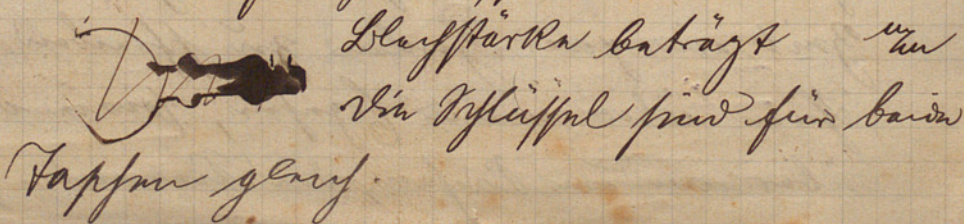 Blechstärke beträgt m/m
Die Schlüssel sind für beide
Taschen gleich.